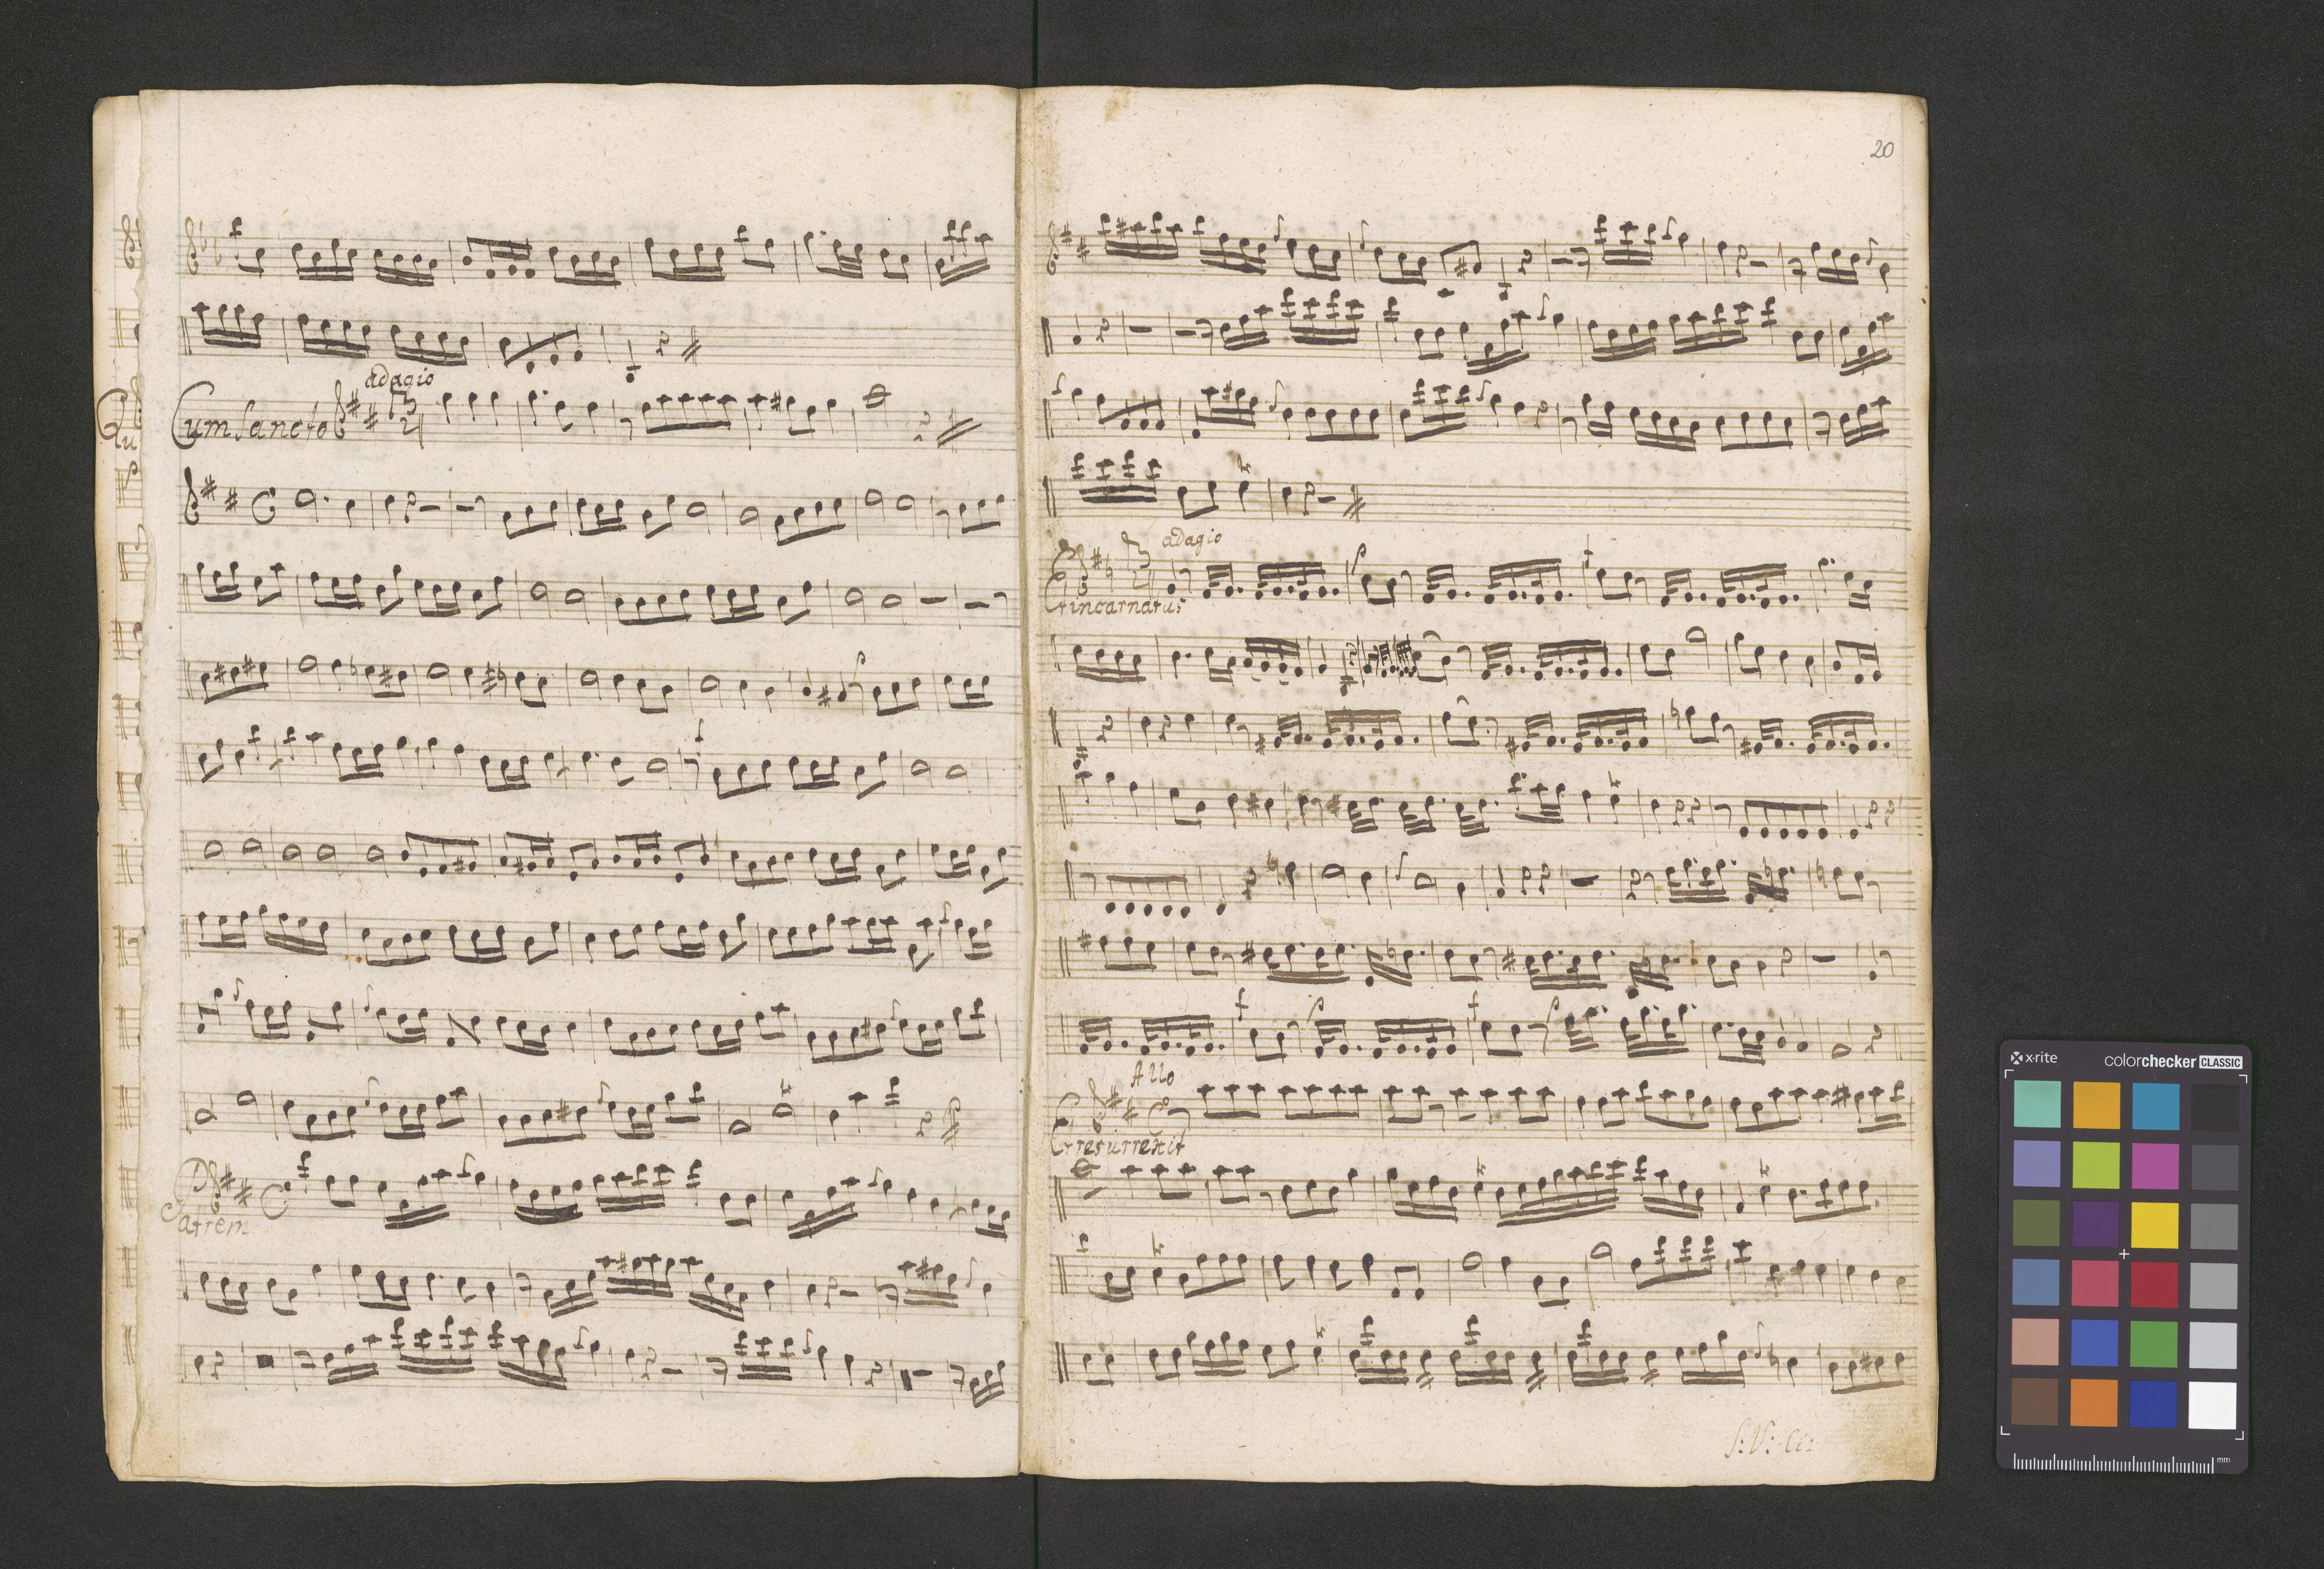 adagio
Cum Sancto
Qu
Patrem
20
adagio
Et incarnatus
Allo
Et resurrexit
x-rite
colorchecker CLASSIC
mm